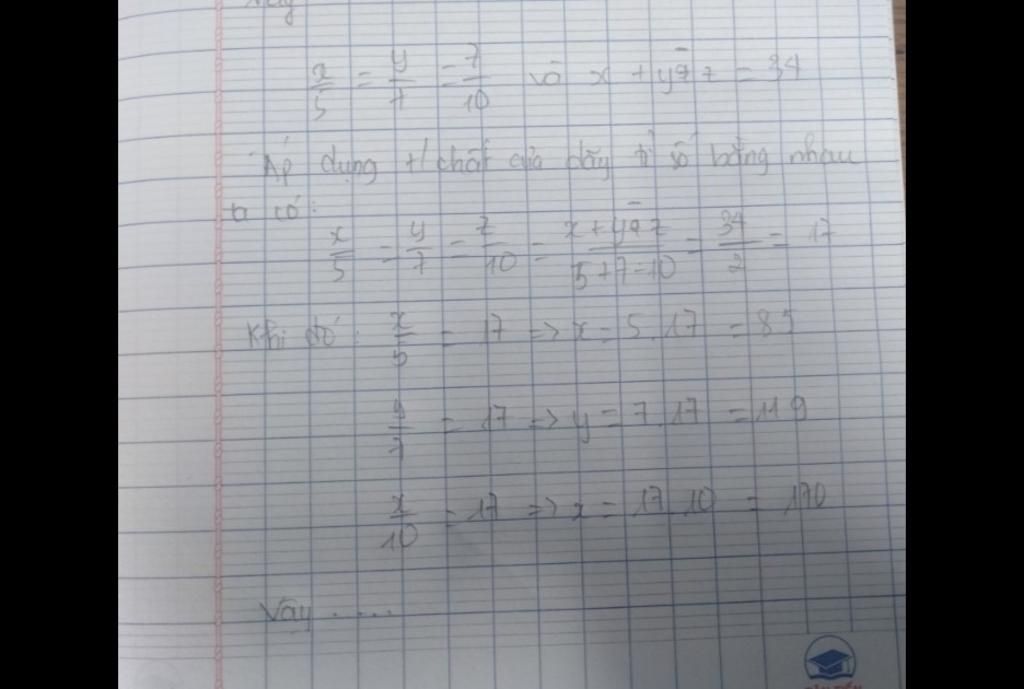 x/5 = y/7 = z/10 và x + y - z = 34
Áp dụng t/ chất của dãy tỉ số bằng nhau
ta có:
x/5 = y/7 = z/10 = x + y - z / 5 + 7 - 10 = 34/2 = 17
Khi đó: x/5 = 17 => x = 5.17 = 85
y/7 = 17 => y = 7.17 = 119
x/10 = 17 => x = 17.10 = 170
Vậy .....